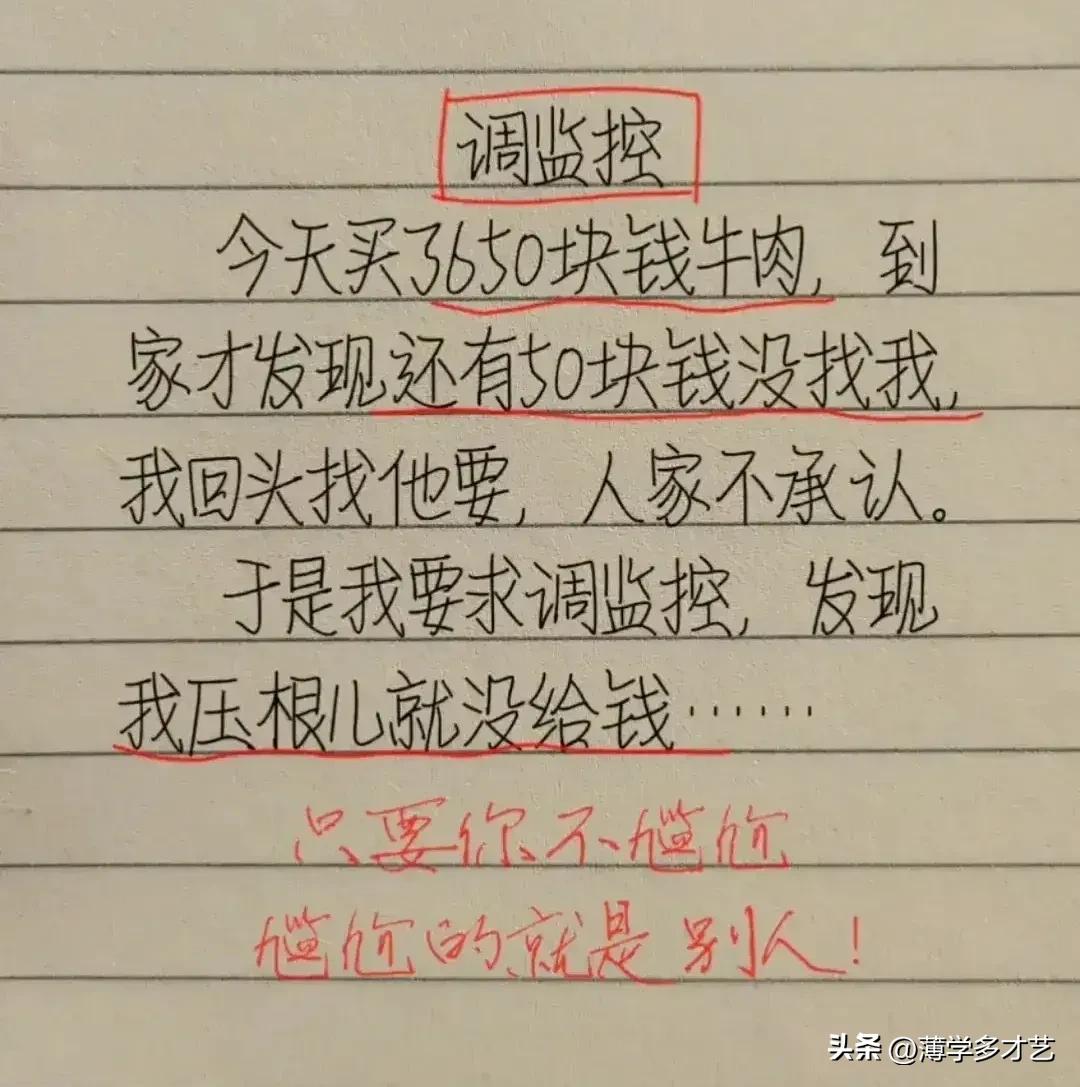 调监控
今天买了650块钱牛肉，到
家才发现还有50块钱没找我，
我回头找他要，人家不承认。
于是我要求调监控，发现
我压根儿就没给钱……
只要你不尴尬
尴尬的就是别人！
头条 @薄学多才艺